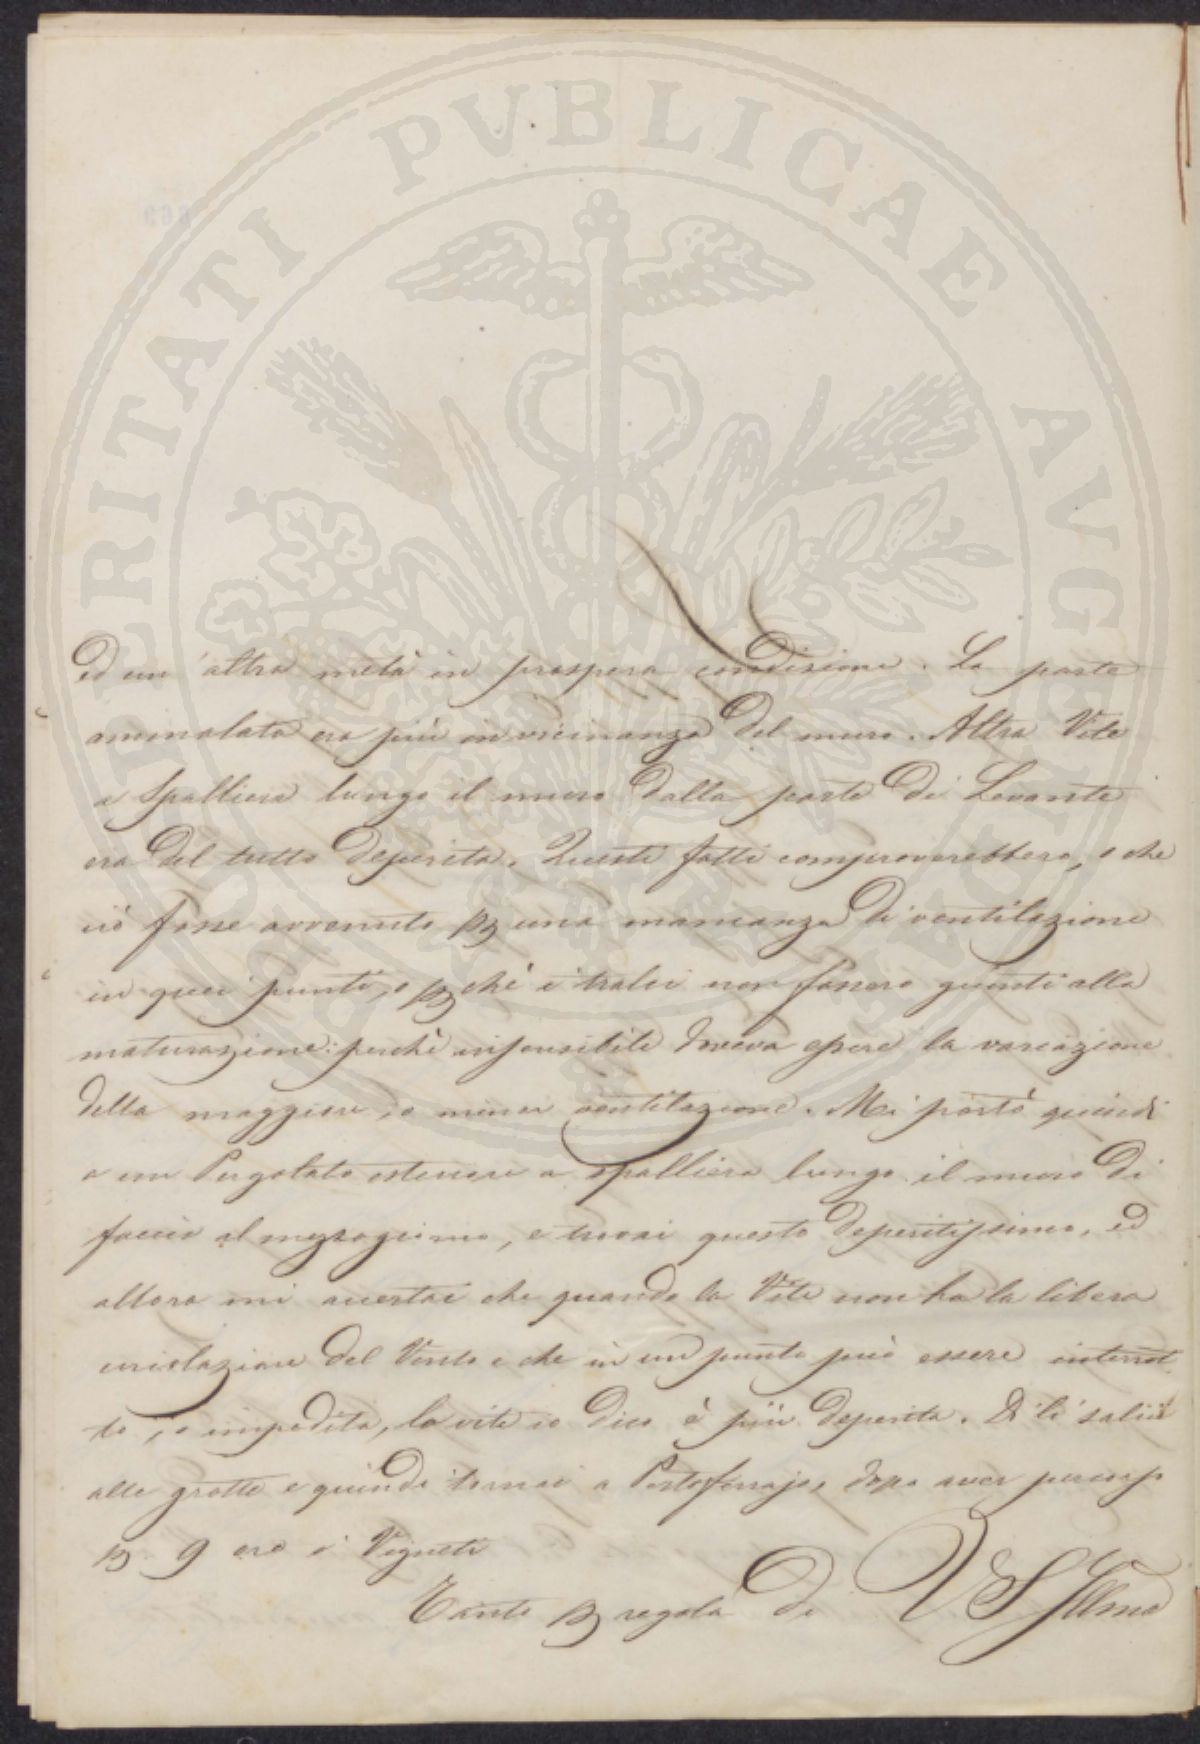 PROSPERITATI PVBLICAE AVGENDAE
ed un'altra metà in prospera condizione. La parte
ammalata era più in vicinanza del muro. Altra Vite
a Spalliera lungo il muro dalla parte di Levante
era del tutto deperita. Questi fatti comproverebbero, o che
ciò fosse avvenuto p una mancanza di ventilazione
in quei punti, o pchè i tralci non fossero giunti alla
maturazione: perchè insensibile doveva essere la variazione
della maggiore, o minor ventilazione. Mi portò quindi
a un Pergolato esteriore a spalliera lungo il muro di
faccia al mezzogiorno, e trovai questo deperitissimo, ed
allora mi accertai che quando la Vite non ha la libera
circolazione del Vento e che in un punto può essere interrot
ta, o impedita, la vite io dico è più deperita. Di lì salii
alle grotte e quindi tornai a Portoferrajo, dopo aver percorso
p 9 ore i Vigneti
Tanto p regola di V S Illma